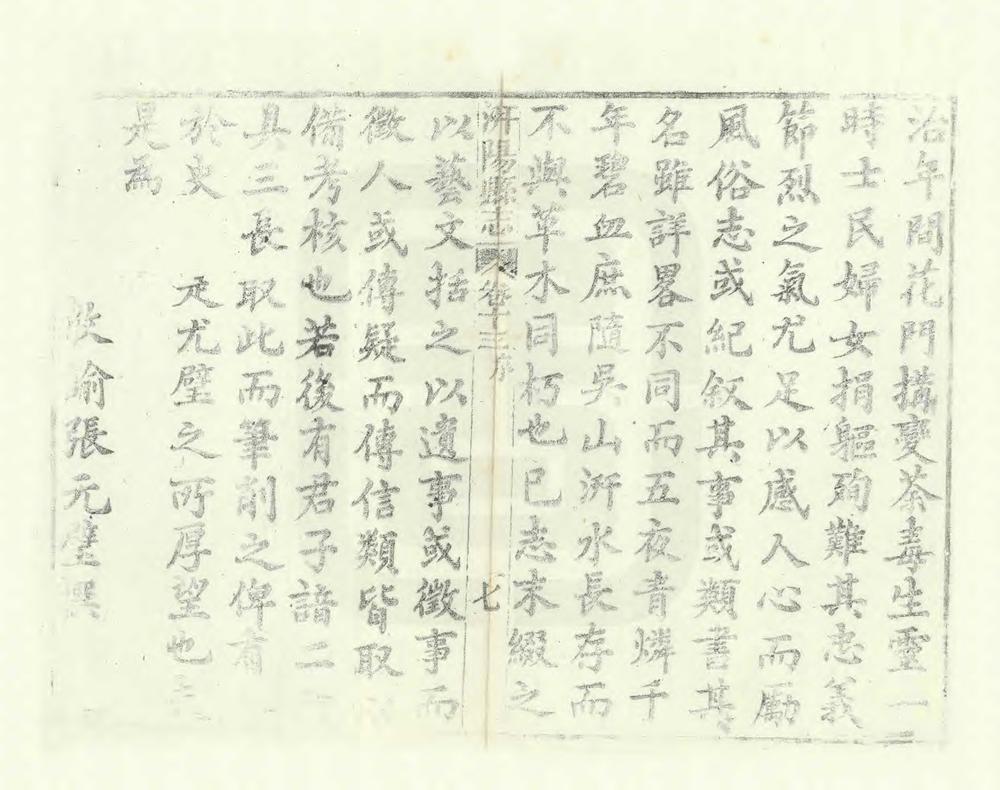 治年間花門搆變荼毒生靈一
時士民婦女捐軀殉難其志義
節烈之氣尤足以感人心而勵
風俗志或紀叙其事或類書其
名雖詳畧不同而五夜青燐千
年碧血庶隨吳山汧水長存而
不與草木同朽也已志末綴之
汧陽縣志 卷十三序 七
以藝文括之以遺事或徵事而
徵人或傳疑而傳信類皆取
備考核也若後有君子諳二
具三長取此而筆削之俾有
於史 尤璧之所厚望也
是為
教諭張元璧撰